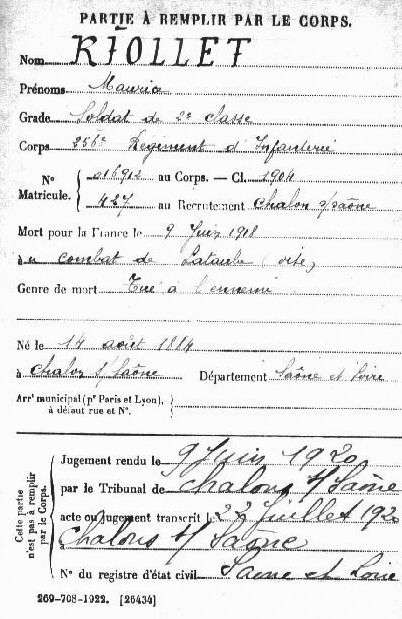 PARTIE À REMPLIR PAR LE CORPS.
Nom RIOLLET
Prénoms Maurice
Grade Soldat de 2e classe
Corps 256e Régiment d'Infanterie
Nº Matricule. { 016912 au Corps. — Cl. 1904
427 au Recrutement Chalon s/Saône
Mort pour la France le 9 Juin 1918
à au combat de Lataule (oise)
Genre de mort Tué à l'ennemi
Né le 14 août 1884
à Chalon s/Saône Département Saône et Loire
Arrt municipal (pr Paris et Lyon), à défaut rue et Nº. {
Cette partie n'est pas à remplir par le Corps.
Jugement rendu le 9 Juin 1920
par le Tribunal de Chalons s/ Saône
acte ou jugement transcrit l 22 Juillet 1920
Chalons s/ Saône
Nº du registre d'état civil Saone et Loire
269-708-1922. [26434]